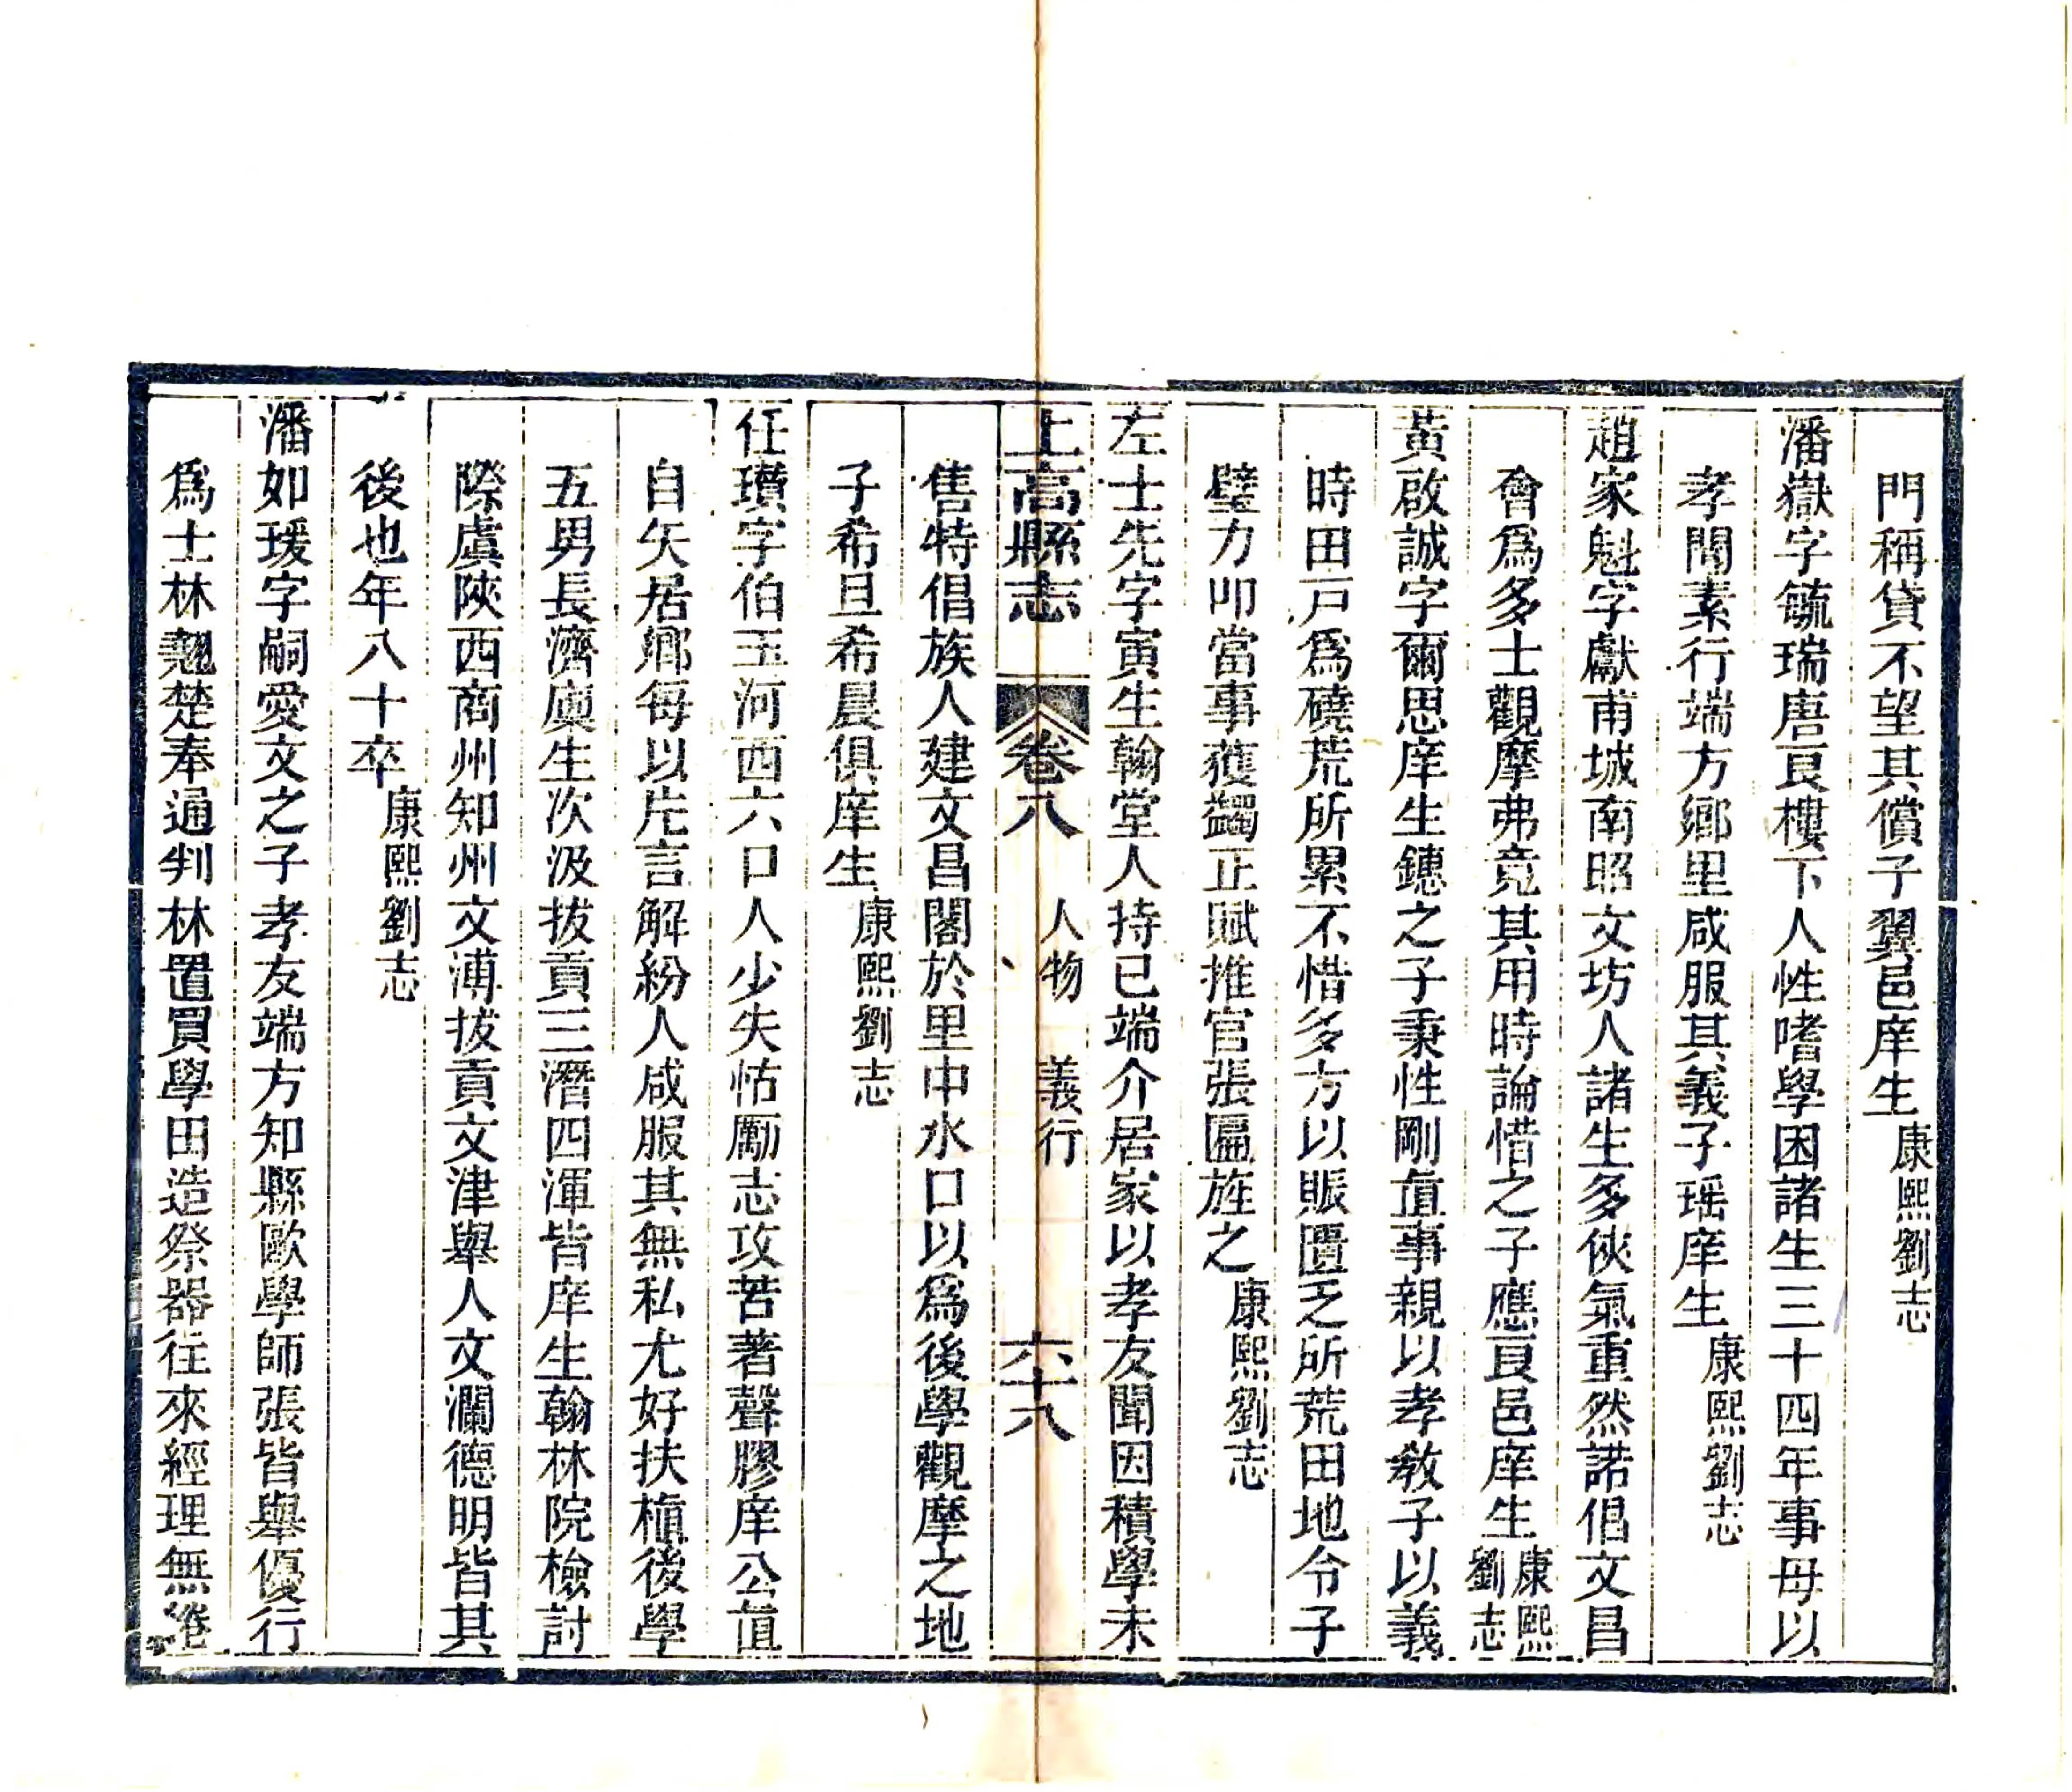 門稱貸不望其償子翼邑庠生康熙劉志
潘嶽字毓瑞唐良樓下人性嗜學困諸生三十四年事母以
孝聞素行端方鄉里咸服其義子瑶庠生康熙劉志
趙家魁字獻甫城南昭文坊人諸生多俠氣重然諾倡文昌
會爲多士觀摩弗竟其用時論惜之子應良邑庠生康熙劉志
黃啟誠字爾思庠生鏸之子秉性剛直事親以孝教子以義
時田戸爲磽荒所累不惜多方以賑匱乏所荒田地令子
璧力叩當事獲蠲正賦推官張匾旌之康熙劉志
左士先字寅生翰堂人持已端介居家以孝友聞因積學未
上高縣志 卷八 人物 義行 六十八
售特倡族人建文昌閣於里中水口以爲後學觀摩之地
子希旦希晨俱庠生康熙劉志
任瓚字伯玉河西六口人少失怙勵志攻苦著聲膠庠公直
自矢居鄉每以片言解紛人咸服其無私尤好扶植後學
五男長濟廩生次汲拔貢三潛四渾皆庠生翰林院檢討
際虞陝西商州知州文溥拔貢文津舉人文瀾德明皆其
後也年八十卒康熙劉志
潘如瑗字嗣愛文之子孝友端方知縣歐學師張皆舉優行
爲士林翹楚奉通判林置買學田造祭器往來經理無